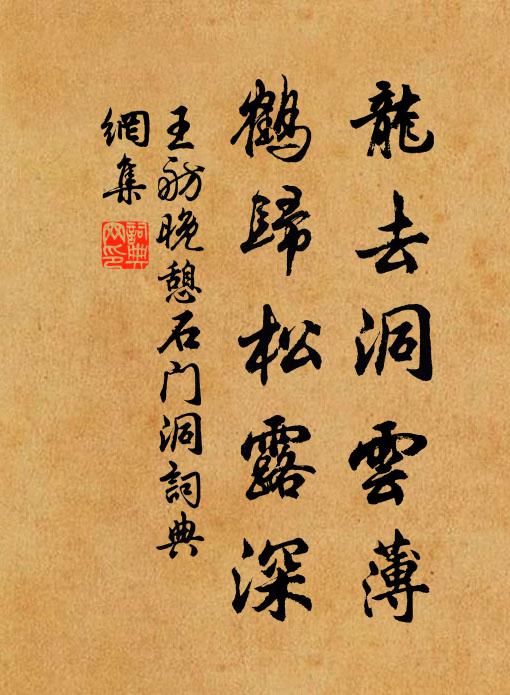 龍去洞雲薄
鶴歸松露深
王舫晚憩石门洞詞典
網集
詞典
網印